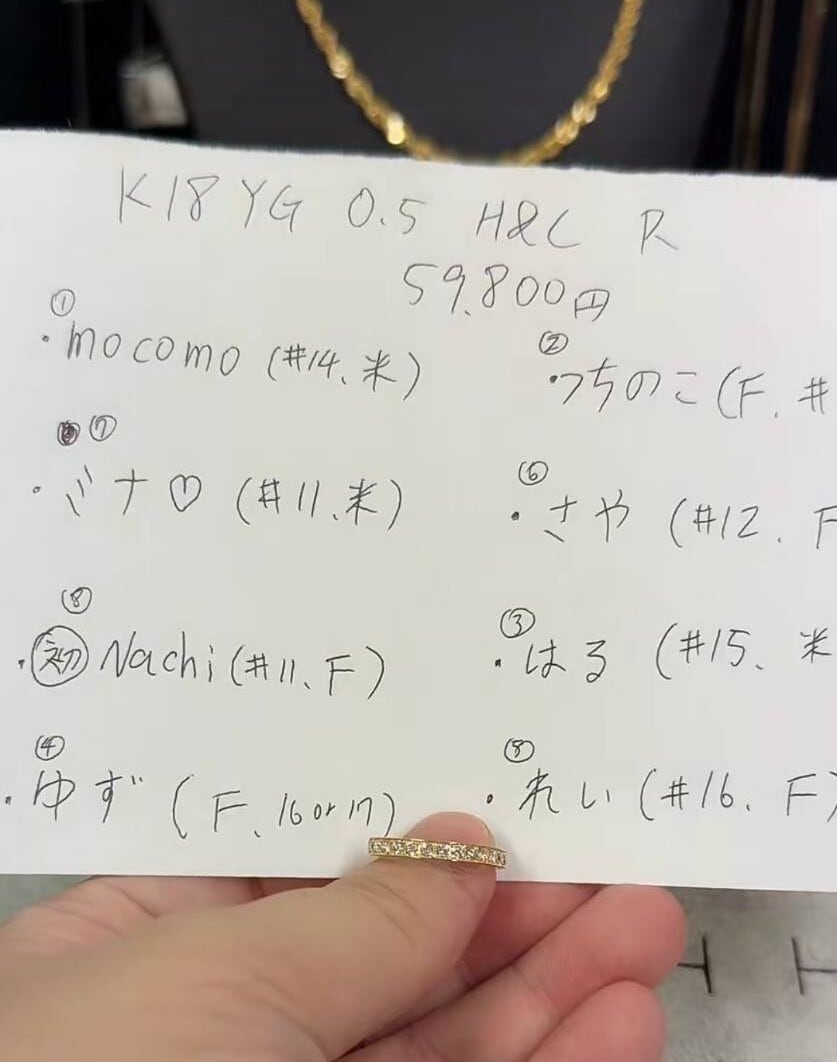 K18 YG 0.5 H&C R
59,800円
① ②
・mocomo (#14、米) ・つちのこ (F、#
⑦ ⑥
・バナ♡ (#11、米) ・さや (#12、F
⑧ ③
・初 Nachi (#11、F) ・はる (#15、米
④ ⑤
・ゆず (F、16 or 17) ・れい (#16、F)